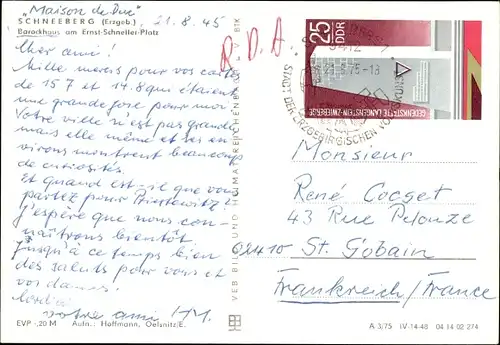 "Maison de Duc"
SCHNEEBERG (Erzgeb.) 21.8.45
Barockhaus am Ernst-Schneller-Platz
Cher ami!
Mille mercis pour vos cartes
de 15.7 et 14.8 qui étaient
une grande joie pour moi.
Votre ville n'est pas grande
mais elle même et ses en-
virons montrent beaucoup
de curiosités.
Et quand est-il que vous
partez pour
J'espère que nous con-
naîtrons bientôt.
Jusqu'à ce temps bien
des saluts pour vous et
vos dames!
votre ami
EVP -,20 M Aufn.: Hoffmann, Oelsnitz/E.
VEB BILD UND HEIMAT REICHENBACH BTK
R.D.A.
25
DDR
GEDENKSTÄTTE LANGENSTEIN-ZWIEBERGE
9412
STADT DER ERZGEBIRGISCHEN
Monsieur
René Cocset
43 Rue Pelouze
02410 St. Gobain
Frankreich/France
A 3/75 IV-14-48 04 14 02 274